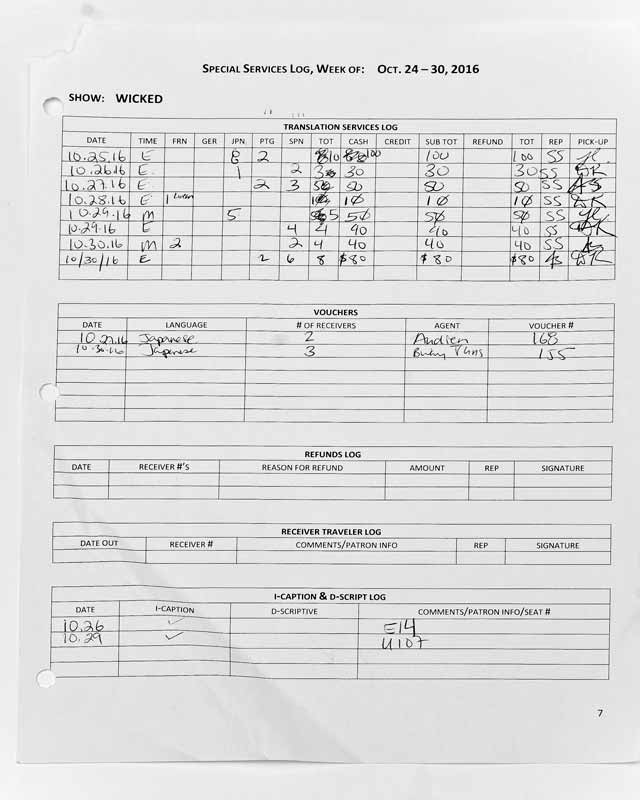 SPECIAL SERVICES LOG, WEEK OF: OCT. 24 – 30, 2016
SHOW: WICKED
TRANSLATION SERVICES LOG
DATE TIME FRN GER JPN PTG SPN TOT CASH CREDIT SUB TOT REFUND TOT REP PICK-UP
10.25.16 E 8 2 10 100 100 100 SS
10.26.16 E. 1 2 3 30 30 30 SS
10.27.16 E. 2 3 5 50 50 50 SS
10.28.16 E 1 10 10 10 SS
10.29.16 M 5 5 50 50 50 SS
10.29.16 E 4 4 40 40 40 SS
10.30.16 M 2 2 4 40 40 40 SS
10/30/16 E 2 6 8 $80 $80 $80
VOUCHERS
DATE LANGUAGE # OF RECEIVERS AGENT VOUCHER #
10.27.16 Japanese 2 168
10.30.16 Japanese 3 155
REFUNDS LOG
DATE RECEIVER #'S REASON FOR REFUND AMOUNT REP SIGNATURE
RECEIVER TRAVELER LOG
DATE OUT RECEIVER # COMMENTS/PATRON INFO REP SIGNATURE
I-CAPTION & D-SCRIPT LOG
DATE I-CAPTION D-SCRIPTIVE COMMENTS/PATRON INFO/SEAT #
10.26 ✓ E14
10.29 ✓ U107
7